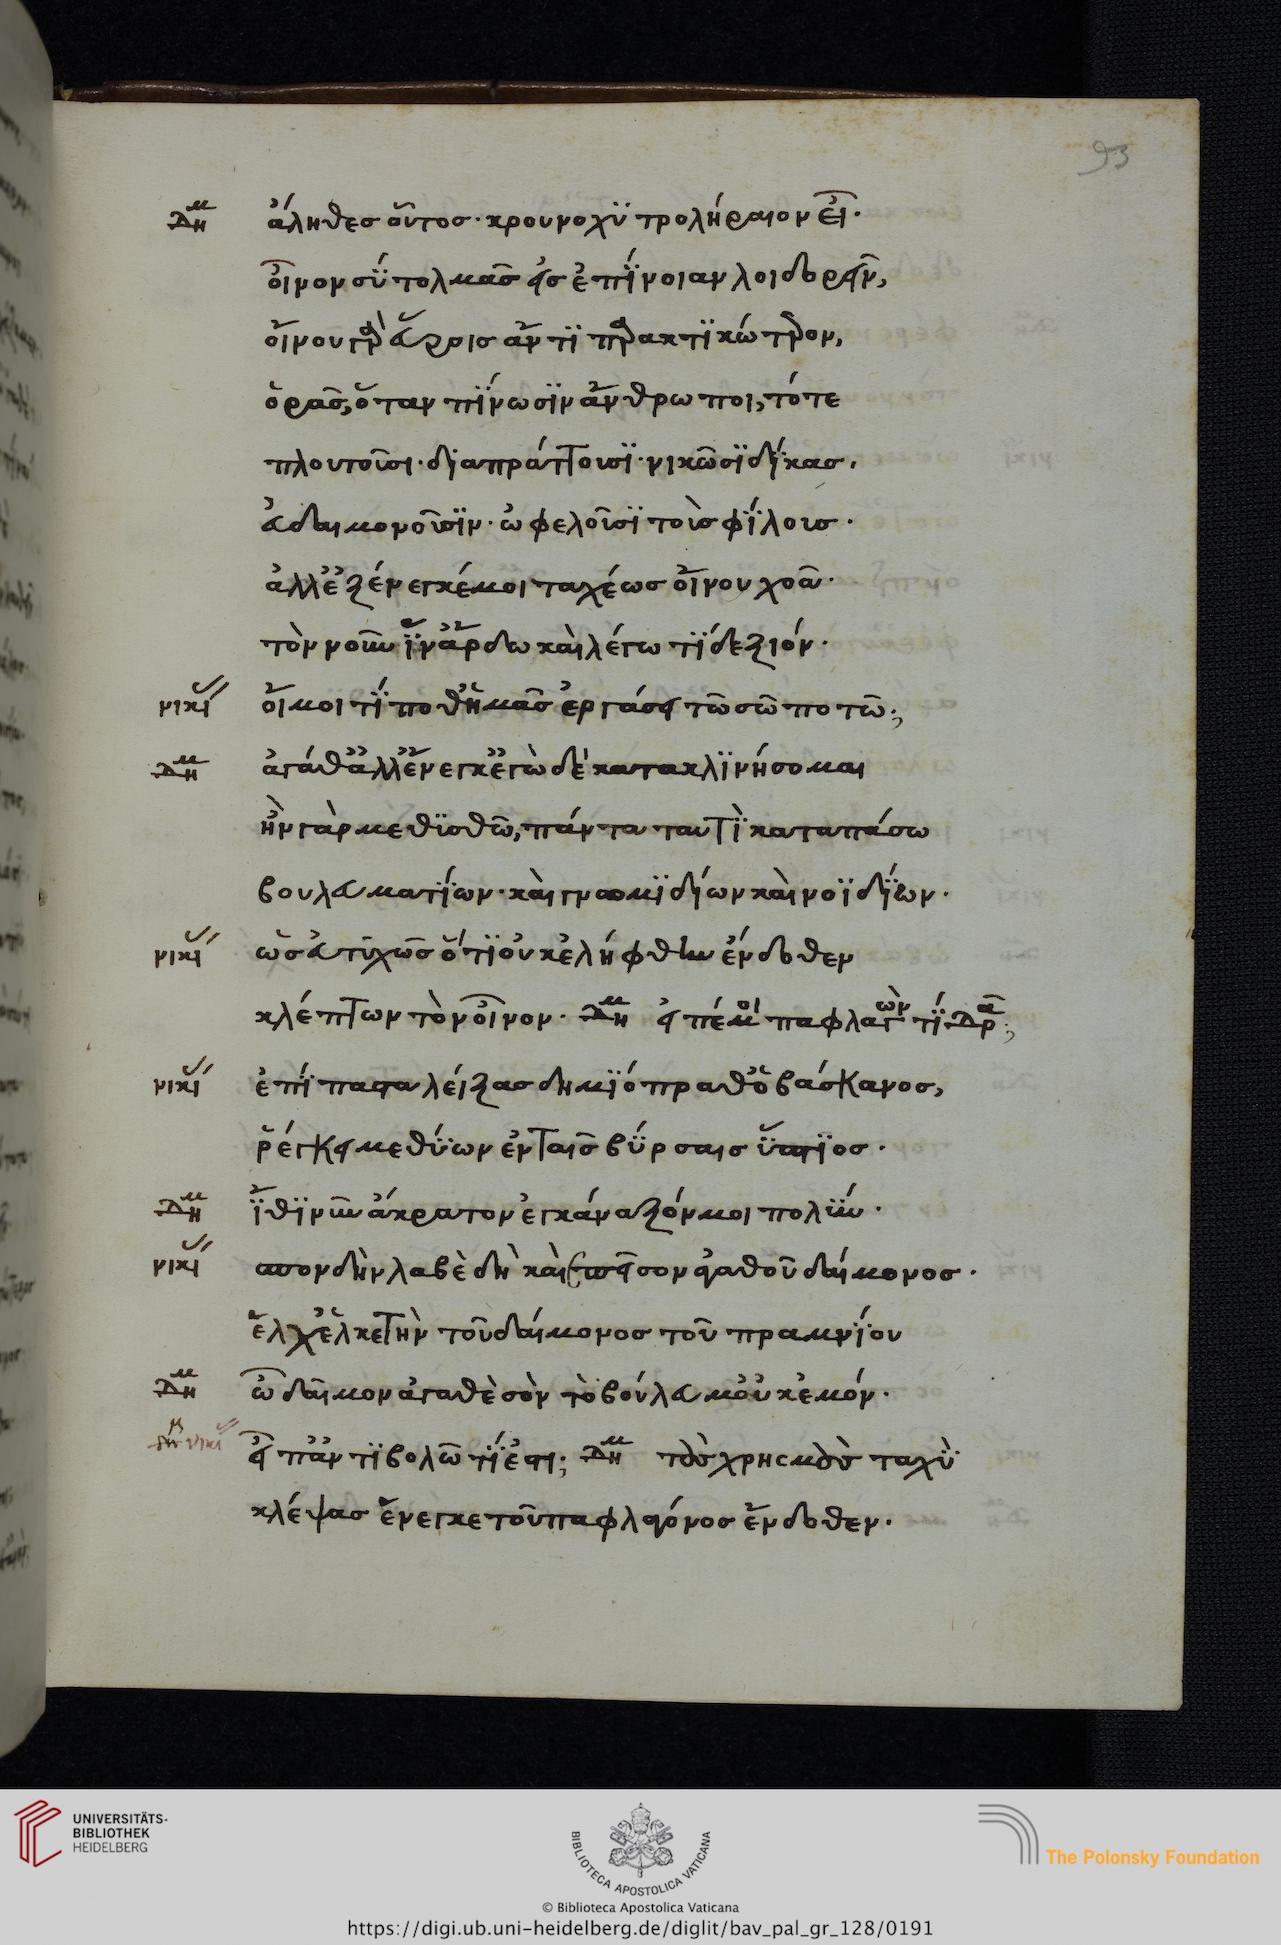 93
Δημ ἄληθες οὗτος· κρουνοχϋτρολήραιον εἶ·
οἶνον σὺ τολμᾶς εἰς ἐπίνοιαν λοιδορεῖν,
οἴνου γὰρ εὕροις ἄν τι πρακτικώτερον,
ὁρᾶς, ὅταν πίνωσιν ἄνθρωποι, τότε
πλουτοῦσι· διαπράττουσι· νικῶσι δίκας.
εὐδαιμονοῦσιν· ὠφελοῦσι τοὺς φίλους·
ἀλλ' ἐξένεγκέ μοι ταχέως οἴνου χοᾶ·
τὸν νοῦν ἵν' ἄρδω καὶ λέγω τι δεξιόν·
νικί οἴμοι τί ποθ' ἡμᾶς ἐργάσει τῶ σῶ ποτῶ;
Δημ ἀγάθ' ἀλλ' ἔνεγκ' ἐγὼ δὲ κατακλινήσομαι
ἢν γὰρ μεθυσθῶ, πάντα ταυτὶ καταπάσω
βουλευματίων· καὶ γνωμιδίων καὶ νοϊδίων·
νικί ὡς εὐτυχῶς ὅτι οὐκ ἐλήφθην ἔνδοθεν
κλέπτων τὸν οἶνον· Δημ εἰπέ μοι παφλαγὼν τί δρᾶ;
νικί ἐπίπαστα λείξας δημιόπραθ' ὁ βάσκανος,
ῥέγκει μεθύων ἐν ταῖς βύρσαις ὕπτιος·
Δημ ἴθι νῦν ἄκρατον ἐγκάναξόν μοι πολὺν·
νικί σπονδὴν λαβὲ δὴ καὶ σπεῖσον ἀγαθοῦ δαίμονος·
ἕλχ' ἕλκε τὴν τοῦ δαίμονος τοῦ πραμνίου
Δημ ὦ δαῖμον ἀγαθὲ σὸν τὸ βούλευμ' οὐκ ἐμόν·
νικί εἴπ' ἀντιβολῶ τί ἐστι; Δημ τοὺς χρησμοὺς ταχὺ
κλέψας ἔνεγκε τοῦ παφλαγόνος ἔνδοθεν·
UNIVERSITÄTS-
BIBLIOTHEK
HEIDELBERG
BIBLIOTECA APOSTOLICA VATICANA
The Polonsky Foundation
© Biblioteca Apostolica Vaticana
https://digi.ub.uni-heidelberg.de/diglit/bav_pal_gr_128/0191